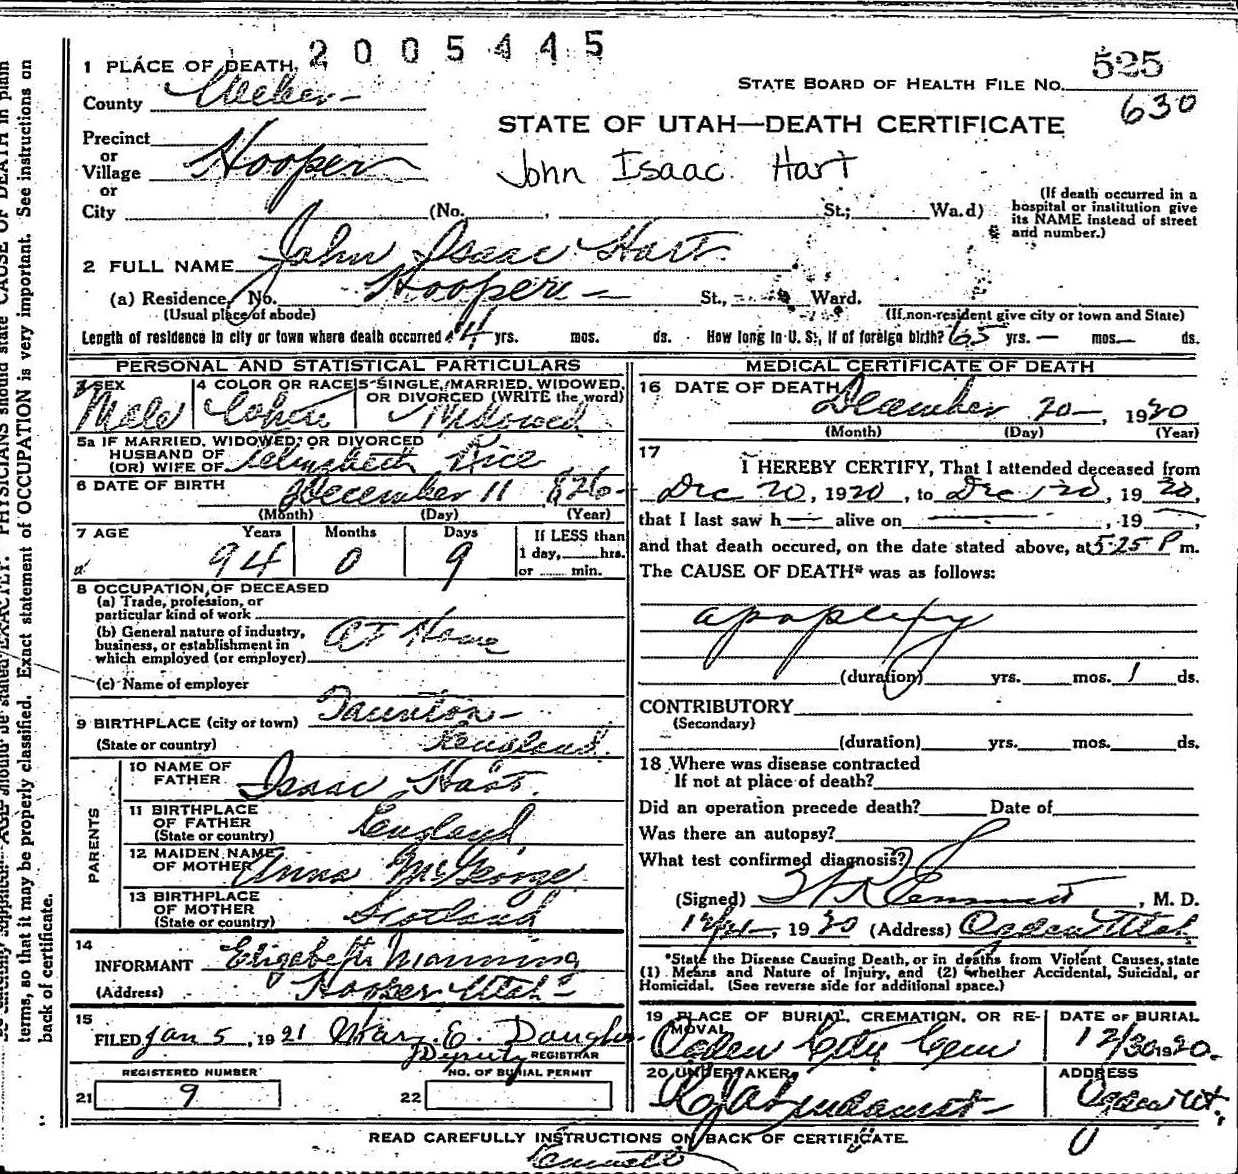 2005445
1 PLACE OF DEATH,
STATE BOARD OF HEALTH FILE NO. 525
630
County Weber
STATE OF UTAH—DEATH CERTIFICATE
Precinct
or
Village Hooper
John Isaac Hart
or
City (No. , St.; Wa.d)
(If death occurred in a
hospital or institution give
its NAME instead of street
and number.)
2 FULL NAME John Isaac Hart.
(a) Residence, No. Hooper St., Ward.
(Usual place of abode) (If non-resident give city or town and State)
Length of residence in city or town where death occurred 14 yrs. mos. ds. How long in U. S., if of foreign birth? 65 yrs. — mos. — ds.
PERSONAL AND STATISTICAL PARTICULARS
3 SEX Male
4 COLOR OR RACE White
5 SINGLE, MARRIED, WIDOWED, OR DIVORCED (WRITE the word) Widowed
5a IF MARRIED, WIDOWED, OR DIVORCED
HUSBAND OF
(OR) WIFE OF Elizabeth Rice
6 DATE OF BIRTH December 11 1826
(Month) (Day) (Year)
7 AGE Years Months Days If LESS than
94 0 9 1 day, hrs.
or min.
8 OCCUPATION OF DECEASED
(a) Trade, profession, or
particular kind of work
(b) General nature of industry,
business, or establishment in
which employed (or employer) At Home
(c) Name of employer
9 BIRTHPLACE (city or town) Taunton
(State or country) England.
PARENTS
10 NAME OF
FATHER Isaac Hart.
11 BIRTHPLACE
OF FATHER
(State or country) England
12 MAIDEN NAME
OF MOTHER Anna McGeorge
13 BIRTHPLACE
OF MOTHER
(State or country) Scotland
14
INFORMANT Elizabeth Manning
(Address) Hooper Utah
15
FILED Jan 5, 1921 Mary E. Douglas
Deputy REGISTRAR
REGISTERED NUMBER NO. OF BURIAL PERMIT
21 9 22
MEDICAL CERTIFICATE OF DEATH
16 DATE OF DEATH December 20, 1920
(Month) (Day) (Year)
17
I HEREBY CERTIFY, That I attended deceased from
Dec 20, 1920, to Dec 20, 1920,
that I last saw h— alive on , 19 ,
and that death occured, on the date stated above, at 5.25 P m.
The CAUSE OF DEATH* was as follows:
apoplexy
(duration) yrs. mos. 1 ds.
CONTRIBUTORY
(Secondary)
(duration) yrs. mos. ds.
18 Where was disease contracted
If not at place of death?
Did an operation precede death? Date of
Was there an autopsy?
What test confirmed diagnosis?
(Signed) , M. D.
12/21, 1920 (Address) Ogden Utah
*State the Disease Causing Death, or in deaths from Violent Causes, state
(1) Means and Nature of Injury, and (2) whether Accidental, Suicidal, or
Homicidal. (See reverse side for additional space.)
19 PLACE OF BURIAL, CREMATION, OR RE-
MOVAL
Ogden City Cem
DATE OF BURIAL
12/30 1920.
20 UNDERTAKER
ADDRESS
Ogden Ut.
READ CAREFULLY INSTRUCTIONS ON BACK OF CERTIFICATE.
terms, so that it may be properly classified. Exact statement of OCCUPATION is very important. See instructions on
back of certificate.